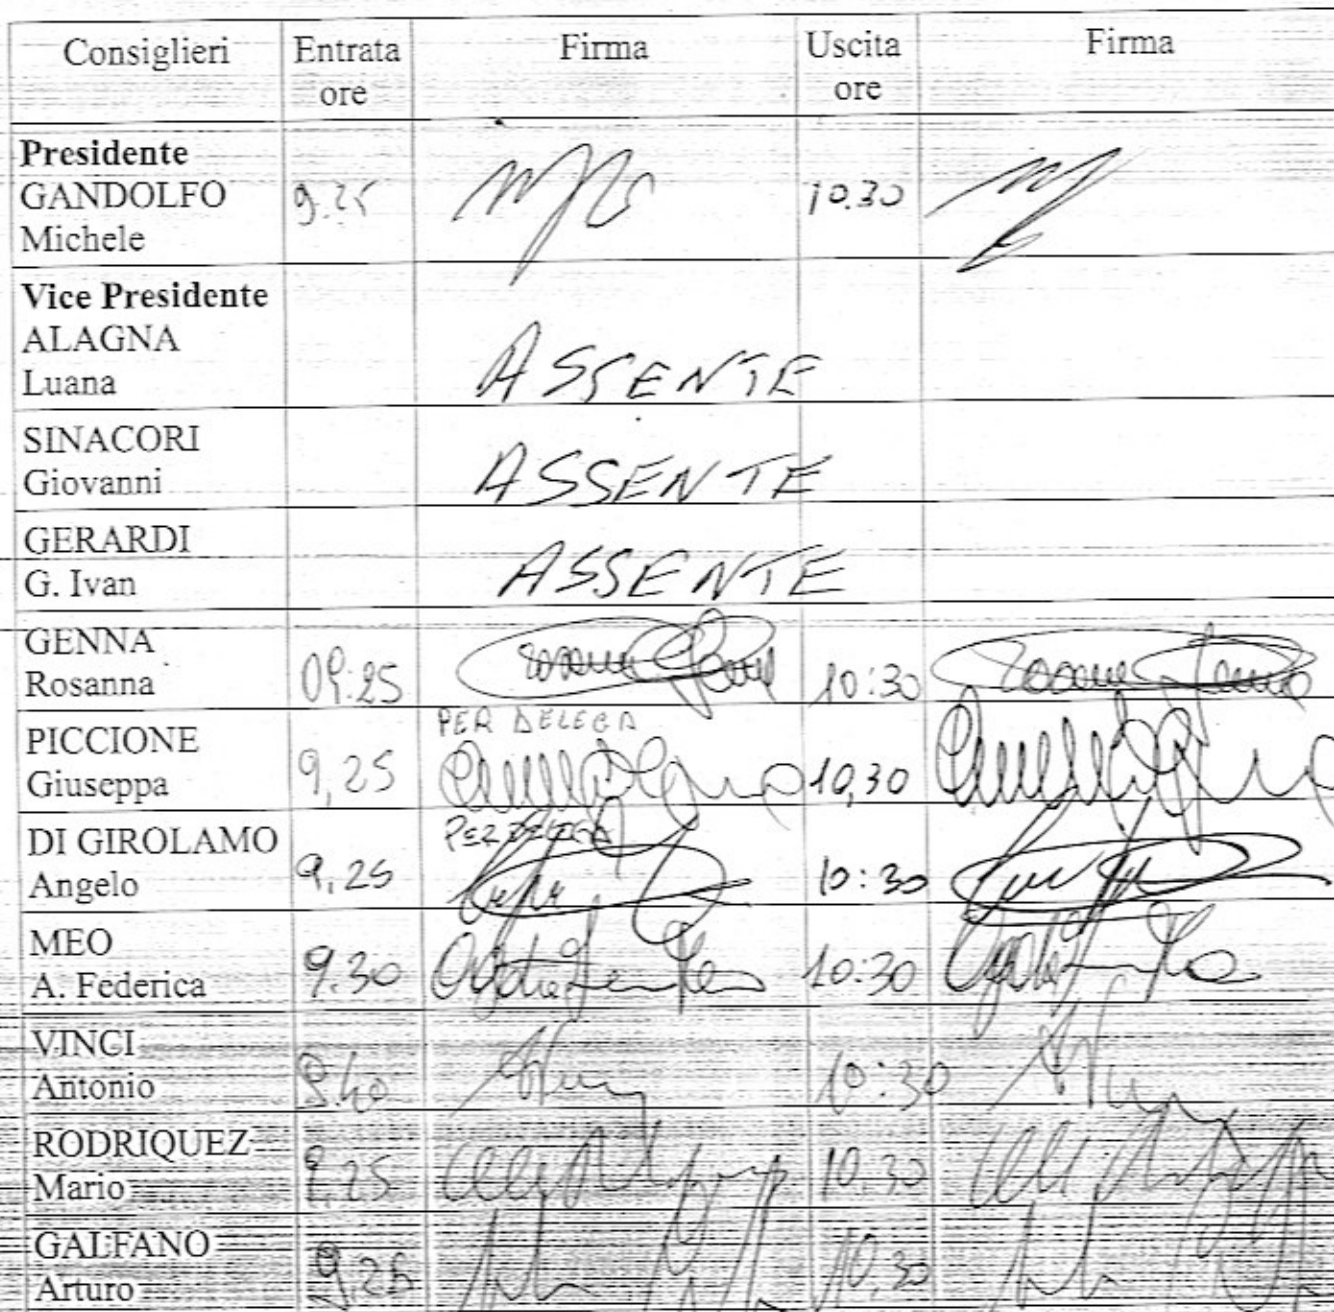 Consiglieri Entrata ore Firma Uscita ore Firma
Presidente
GANDOLFO 9.25 10.30
Michele
Vice Presidente
ALAGNA
Luana ASSENTE
SINACORI
Giovanni ASSENTE
GERARDI
G. Ivan ASSENTE
GENNA
Rosanna 09:25 10:30
PICCIONE PER DELEGA
Giuseppa 9,25 10,30
DI GIROLAMO PER DELEGA
Angelo 9,25 10:30
MEO
A. Federica 9.30 10:30
VINCI
Antonio 9.40 10:30
RODRIQUEZ
Mario 9,25 10,30
GALFANO
Arturo 9,25 10,30